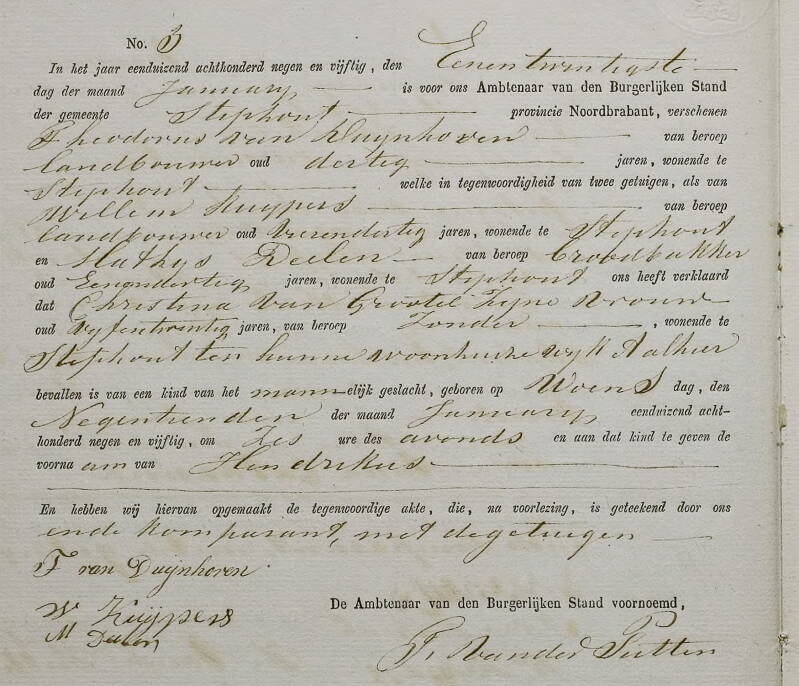 No. 3
In het jaar eenduizend achthonderd negen en vijftig, den Eenentwintigste
dag der maand January is voor ons Ambtenaar van den Burgerlijken Stand
der gemeente Stiphout provincie Noordbrabant, verschenen
Theodorus van Duynhoven van beroep
landbouwer oud dertig jaren, wonende te
Stiphout welke in tegenwoordigheid van twee getuigen, als van
Willem Kuypers van beroep
landbouwer oud Vierendertig jaren, wonende te Stiphout
en Mathys Deelen van beroep broodbakker
oud Eenendertig jaren, wonende te Stiphout ons heeft verklaard
dat Christina van Grootel zyne vrouw
oud Vyfentwintig jaren, van beroep Zonder, wonende te
Stiphout ten hunne woonhuize wyk Aalhier
bevallen is van een kind van het mannelijk geslacht, geboren op Woensdag, den
Negentienden der maand January eenduizend acht-
honderd negen en vijftig, om Zes ure des avonds en aan dat kind te geven de
voornaam van Hendrikus
En hebben wij hiervan opgemaakt de tegenwoordige akte, die, na voorlezing, is geteekend door ons
ende komparant, met de getuigen
T van Duijnhoven
W Kuijpers
M Deelen
De Ambtenaar van den Burgerlijken Stand voornoemd,
van der Putten